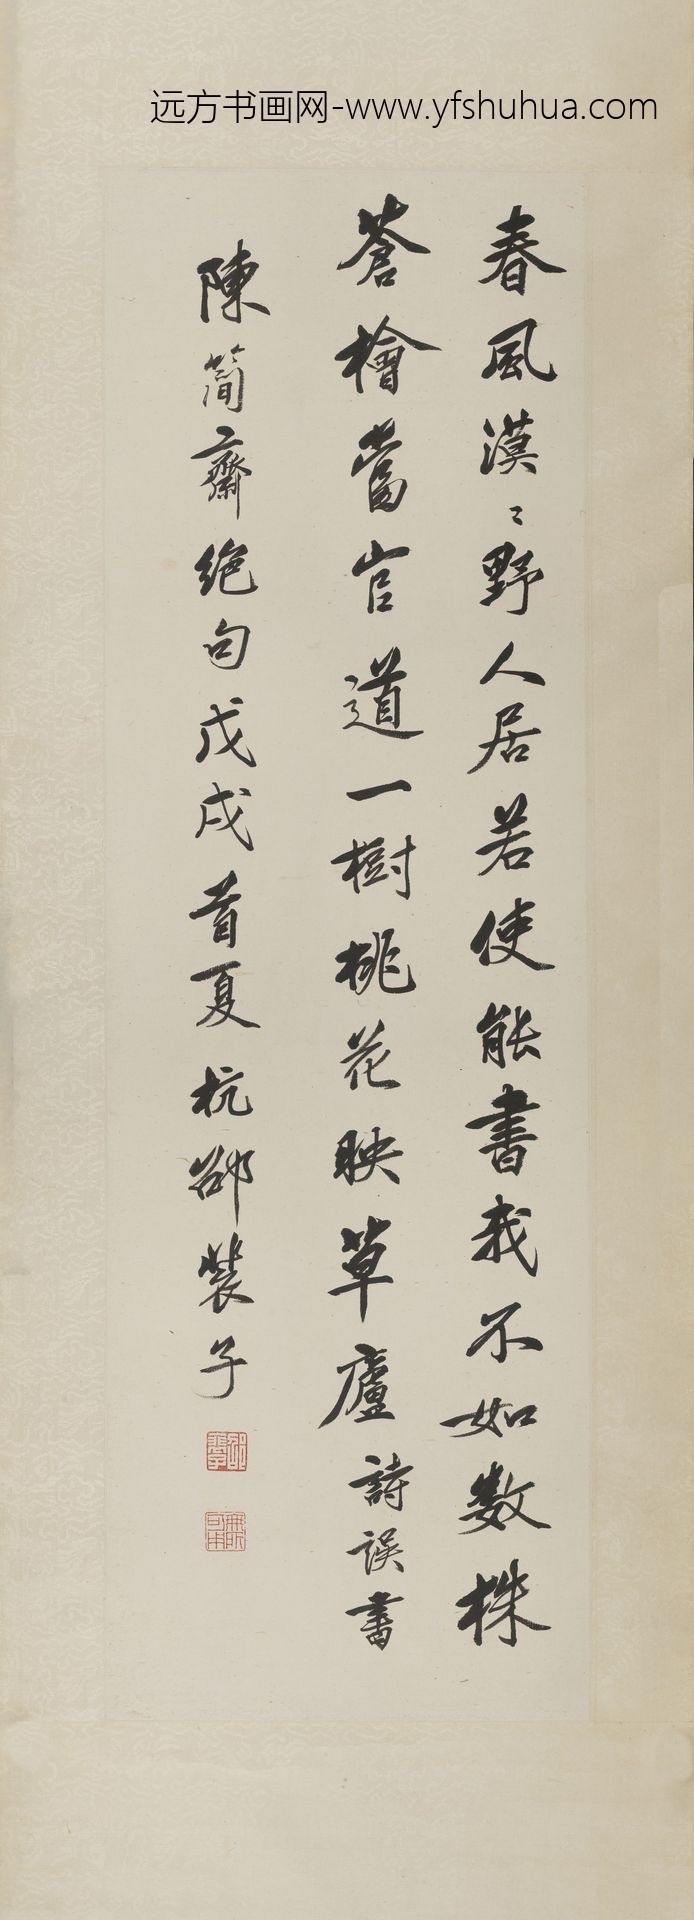 远方书画网-www.yfshuhua.com
春風漠〻野人居若使能書我不如数株
蒼檜當官道一樹桃花映草廬詩誤書
陳簡齋絶句戊戌首夏杭邵裴子